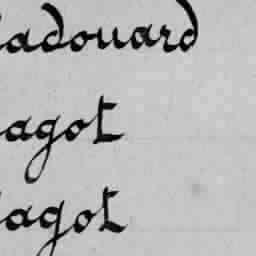 adouard
agot
agot